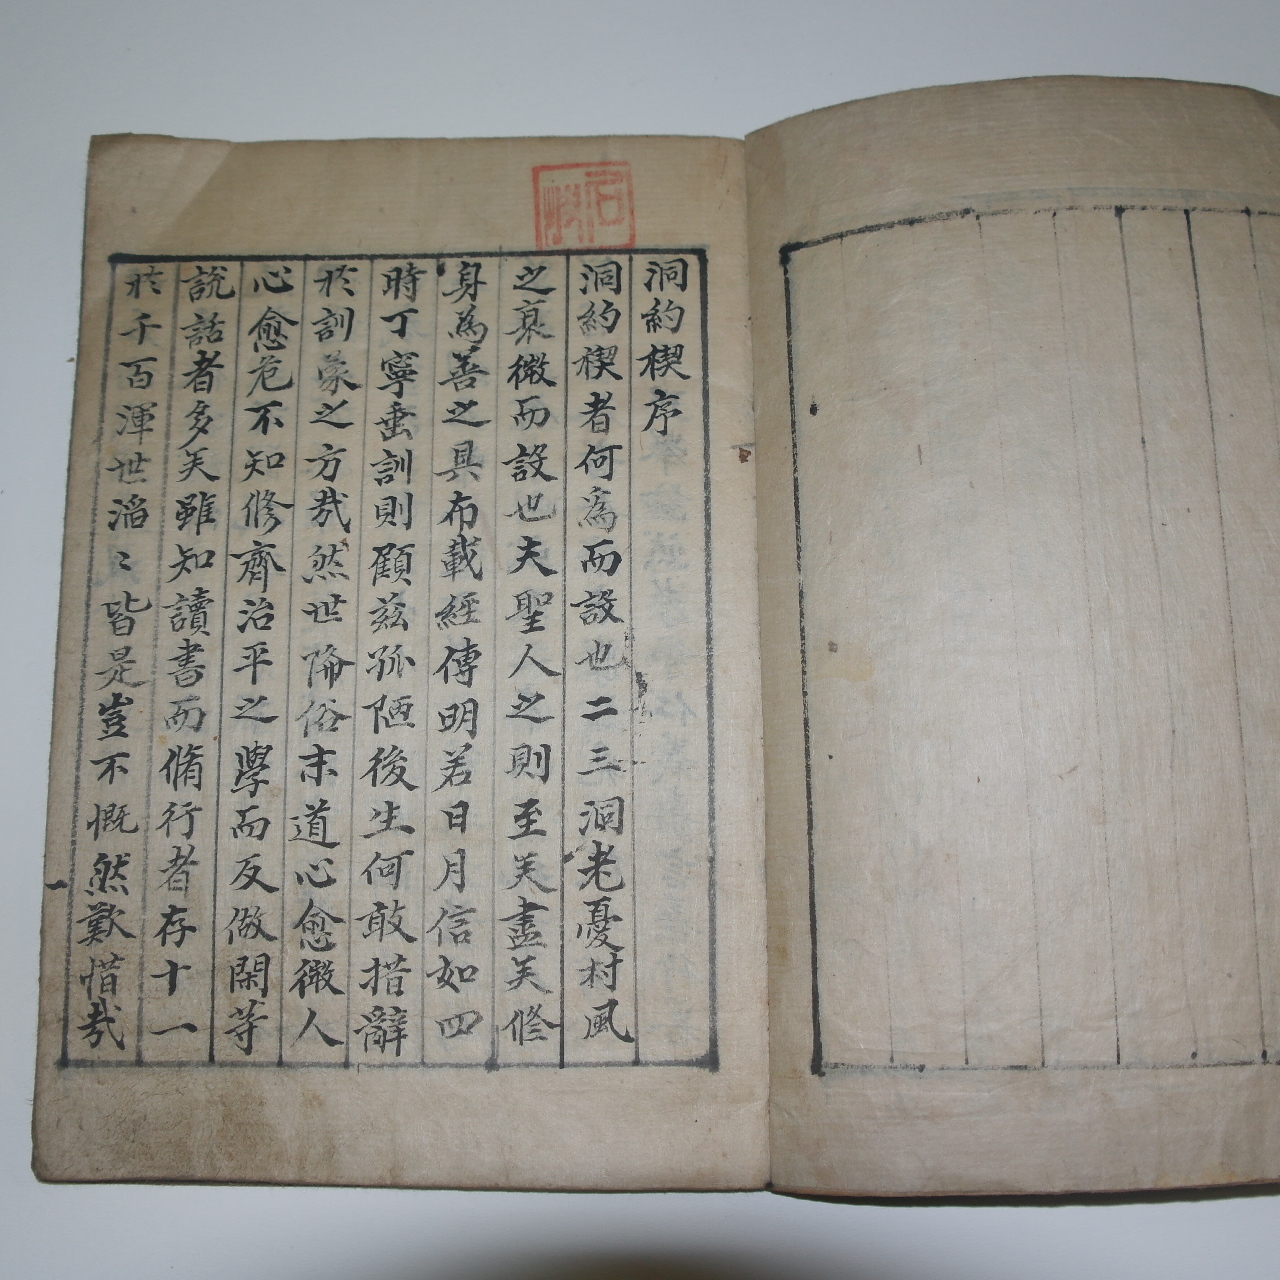 洞約禊序
洞約禊者何爲而設也二三洞老憂村風
之衰微而設也夫聖人之則至矣盡矣修
身為善之具布載經傳明若日月信如四
時丁寧垂訓則顧茲孤陋後生何敢措辭
於訓蒙之方哉然世降俗末道心愈微人
心愈危不知修齊治平之學而反做閑等
說話者多矣雖知讀書而脩行者存十一
於千百渾世滔〻皆是豈不慨然歎惜哉